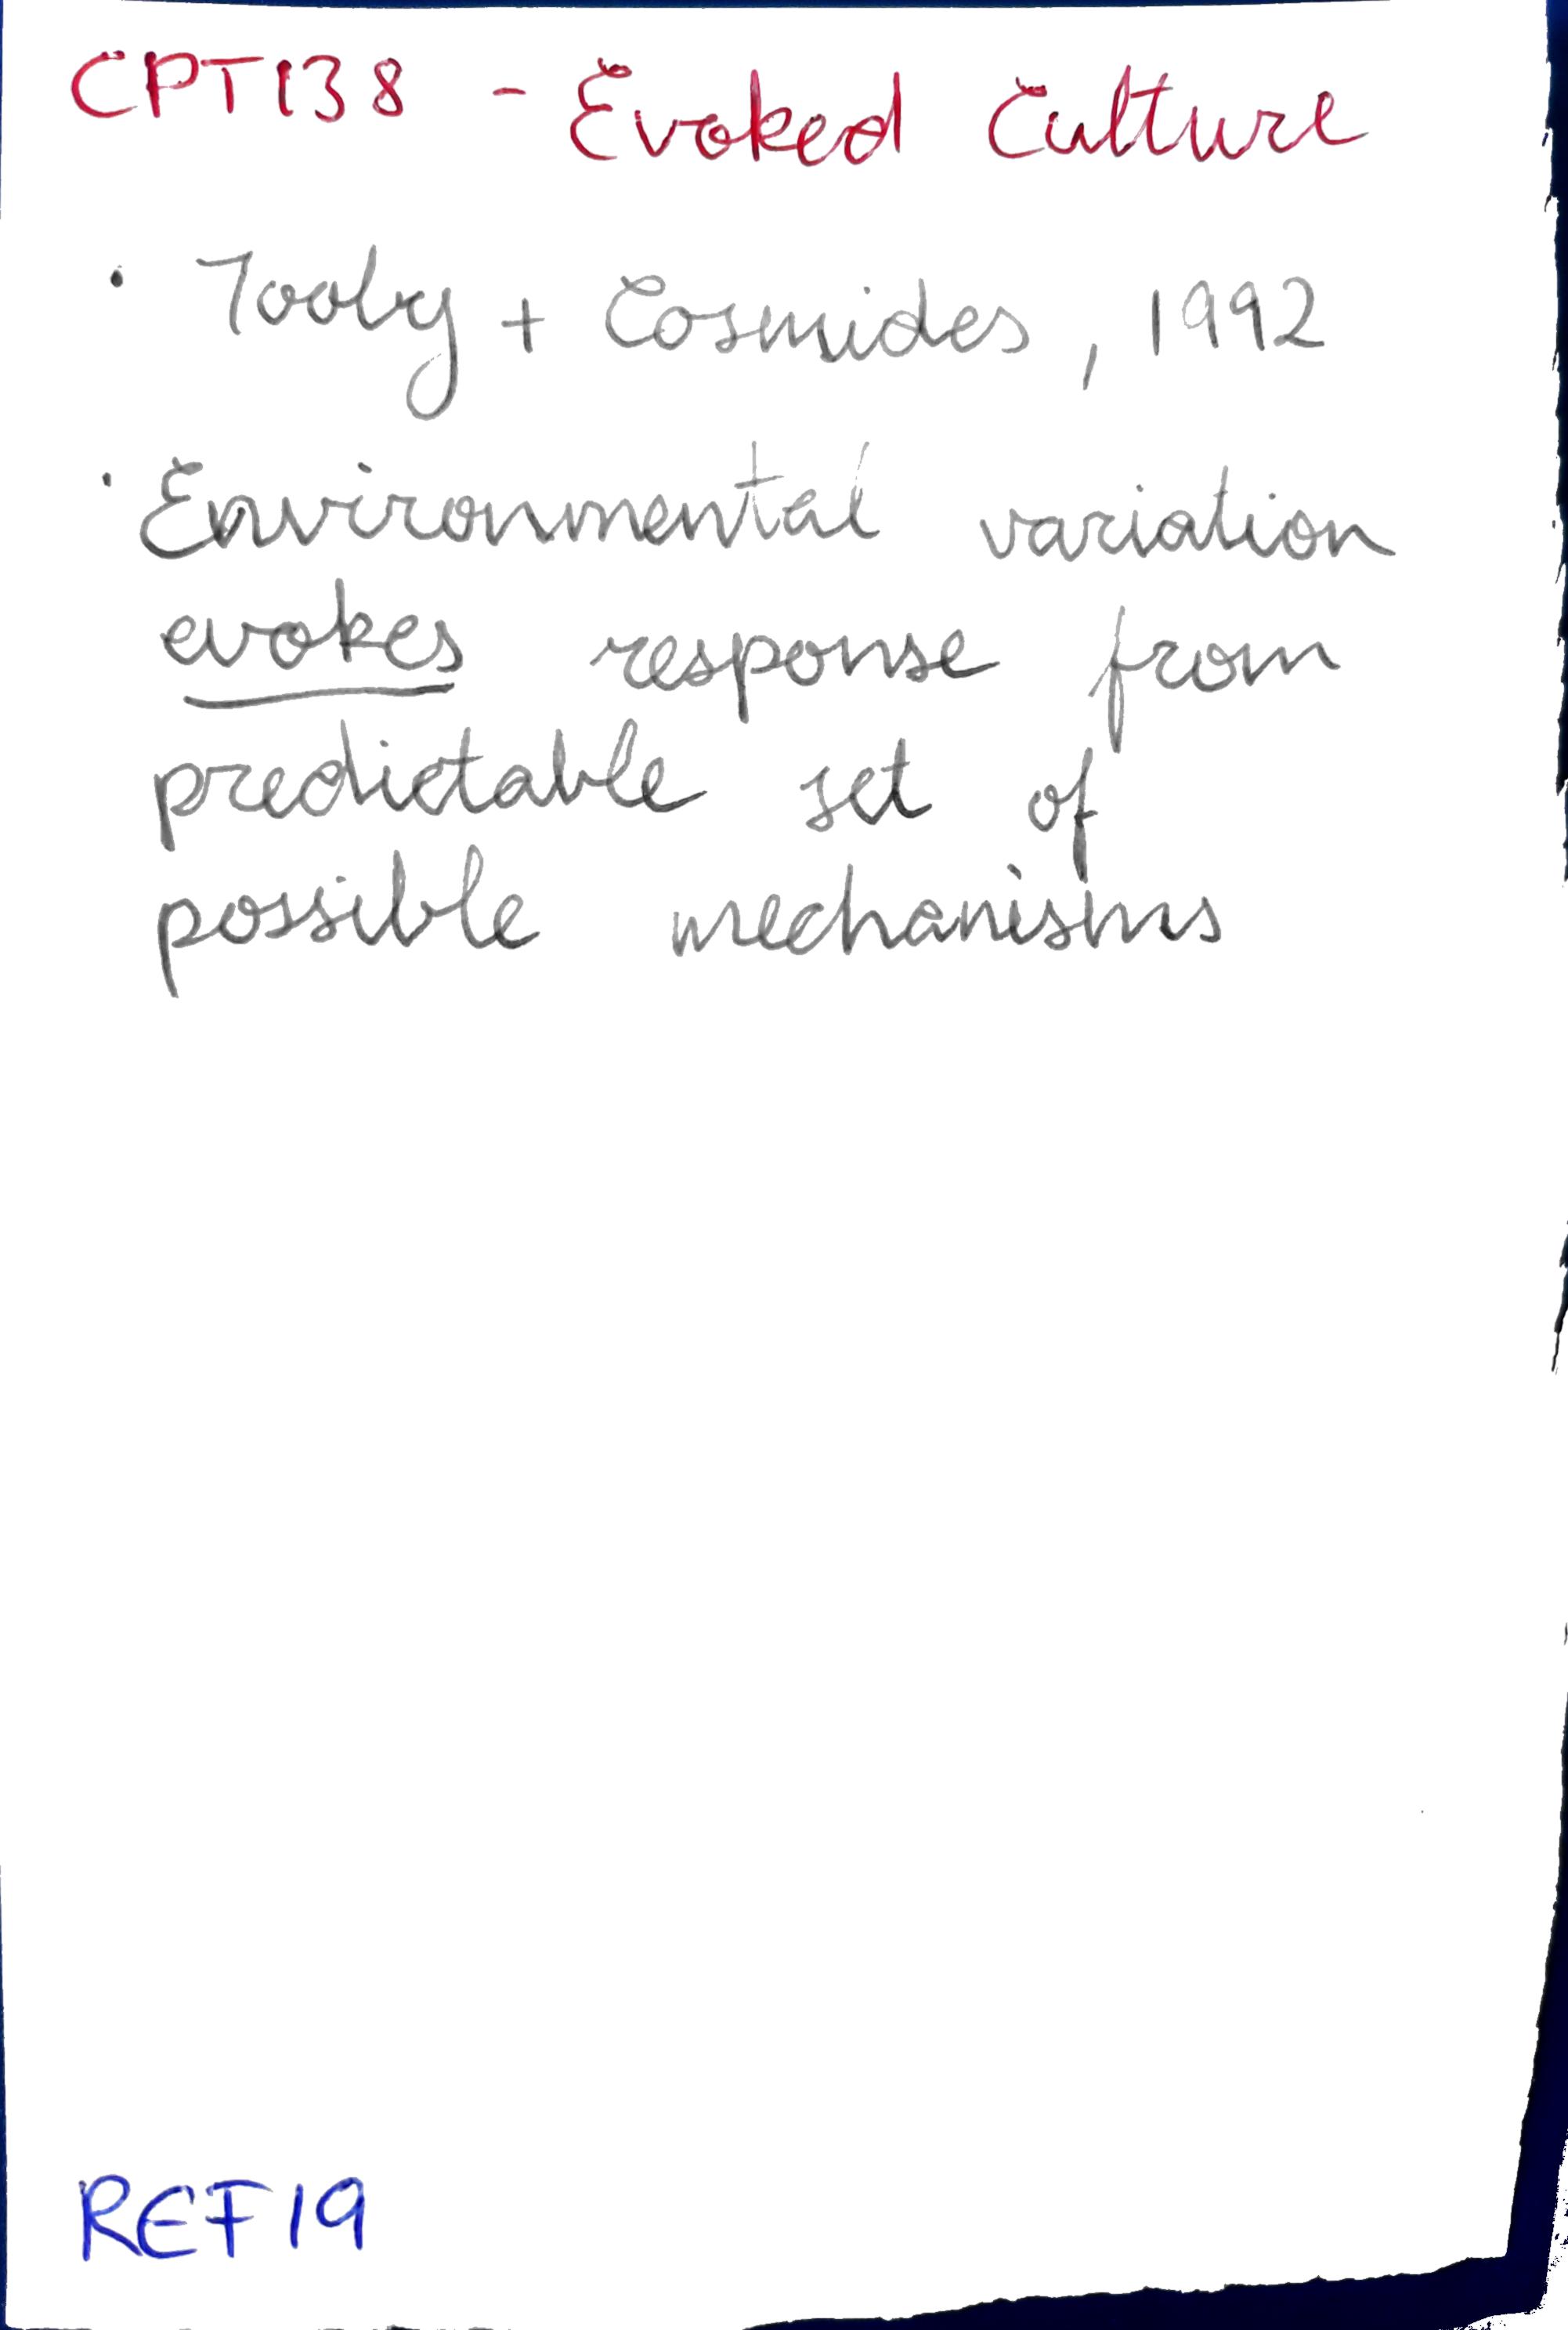 CPT138 - Evoked Culture
· Tooby + Cosmides, 1992
· Environmental variation
evokes response from
predictable set of
possible mechanisms
REF19